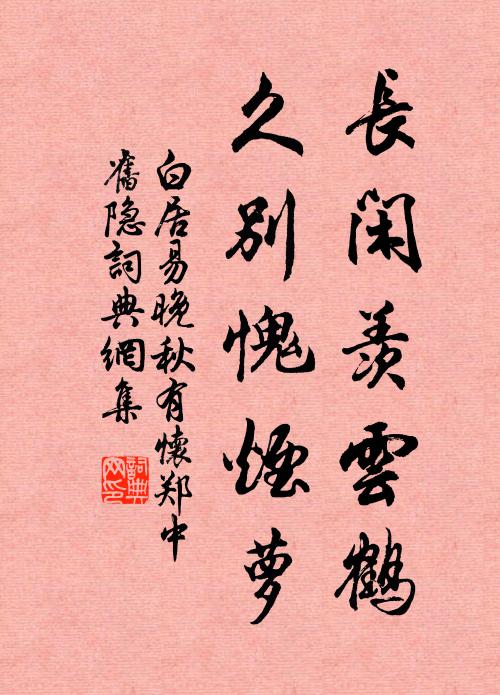 長閑羨雲鶴
久別愧煙萝
白居易晚秋有懷郑中
舊隐詞典網集
詞典
网印